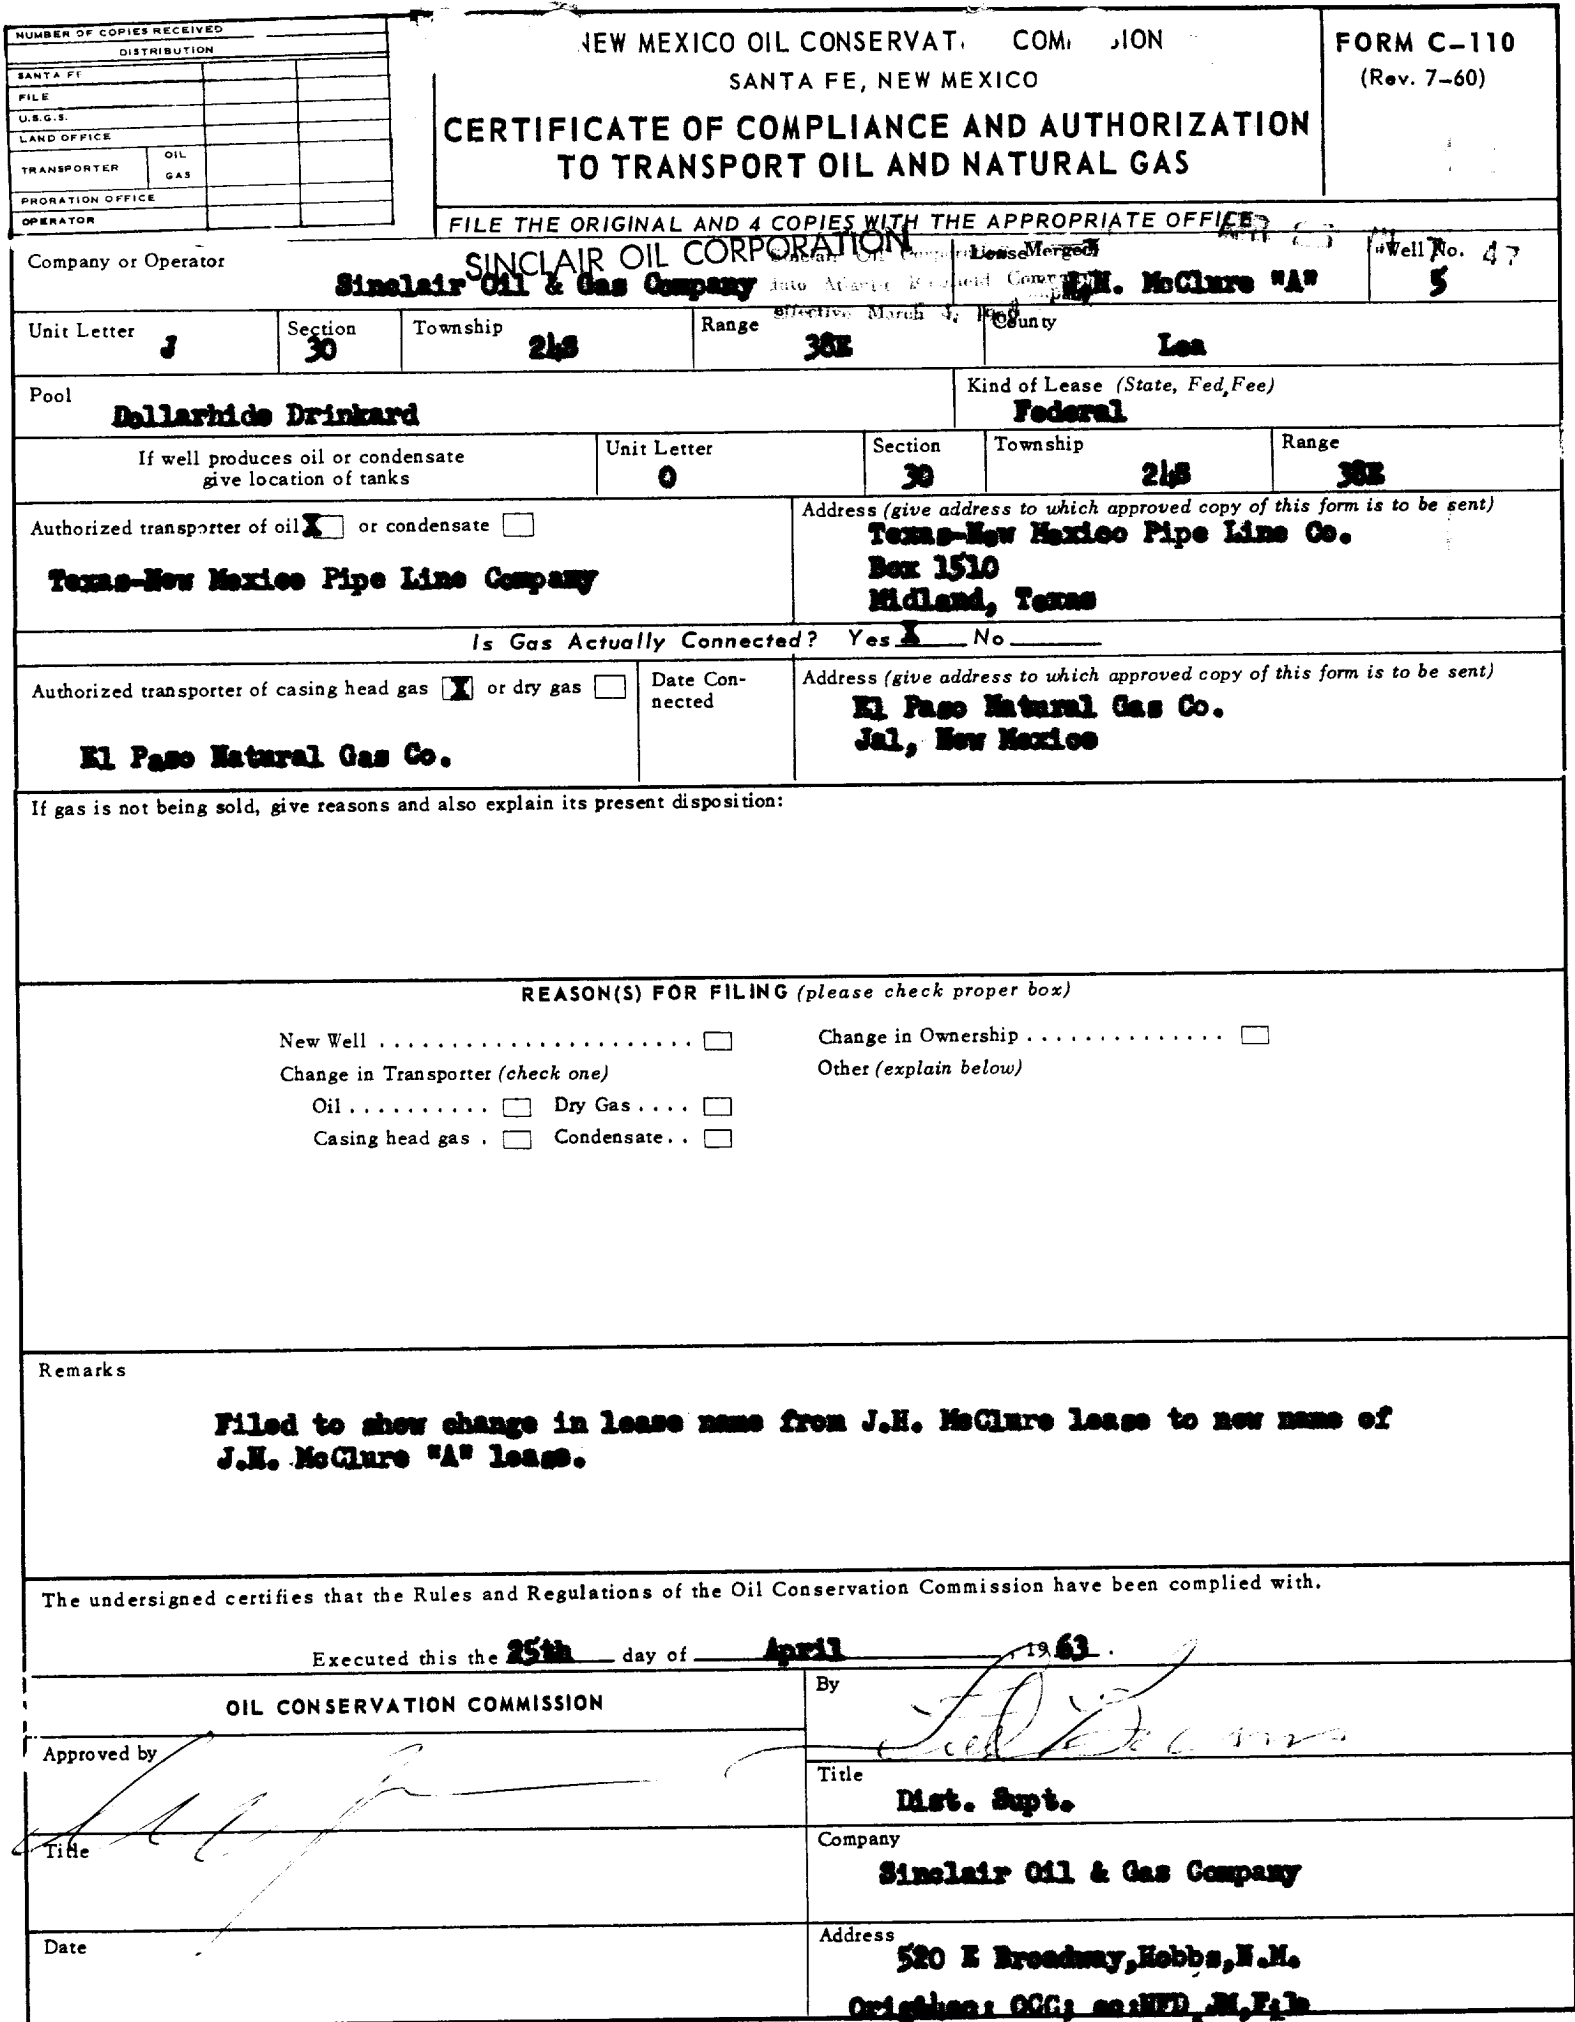 NUMBER OF COPIES RECEIVED
DISTRIBUTION
SANTA FE
FILE
U.S.G.S.
LAND OFFICE
TRANSPORTER OIL
GAS
PRORATION OFFICE
OPERATOR
NEW MEXICO OIL CONSERVAT COM ION
SANTA FE, NEW MEXICO
CERTIFICATE OF COMPLIANCE AND AUTHORIZATION
TO TRANSPORT OIL AND NATURAL GAS
FORM C-110
(Rev. 7-60)
FILE THE ORIGINAL AND 4 COPIES WITH THE APPROPRIATE OFFICE
SINCLAIR OIL CORPORATION
Merged
into
effective March 4,
Company or Operator
Sinclair Oil & Gas Company
Lease
J.H. McClure "A"
Well No. 47
5
Unit Letter J
Section 30
Township 24S
Range 38E
County Lea
Pool
Dollarhide Drinkard
Kind of Lease (State, Fed, Fee)
Federal
If well produces oil or condensate
give location of tanks
Unit Letter O
Section 30
Township 24S
Range 38E
Authorized transporter of oil X or condensate
Texas-New Mexico Pipe Line Company
Address (give address to which approved copy of this form is to be sent)
Texas-New Mexico Pipe Line Co.
Box 1510
Midland, Texas
Is Gas Actually Connected? Yes X No
Authorized transporter of casing head gas X or dry gas
El Paso Natural Gas Co.
Date Con-
nected
Address (give address to which approved copy of this form is to be sent)
El Paso Natural Gas Co.
Jal, New Mexico
If gas is not being sold, give reasons and also explain its present disposition:
REASON(S) FOR FILING (please check proper box)
New Well . . . . . . . . . . . . . . . . . . . . . .
Change in Ownership . . . . . . . . . . . . . .
Change in Transporter (check one)
Other (explain below)
Oil . . . . . . . . . . Dry Gas . . . .
Casing head gas . Condensate . .
Remarks
Filed to show change in lease name from J.H. McClure lease to new name of
J.H. McClure "A" lease.
The undersigned certifies that the Rules and Regulations of the Oil Conservation Commission have been complied with.
Executed this the 25th day of April , 19 63 .
OIL CONSERVATION COMMISSION
Approved by
Title
Date
By
Title
Dist. Supt.
Company
Sinclair Oil & Gas Company
Address
520 E Broadway, Hobbs, N.M.
OCC; File